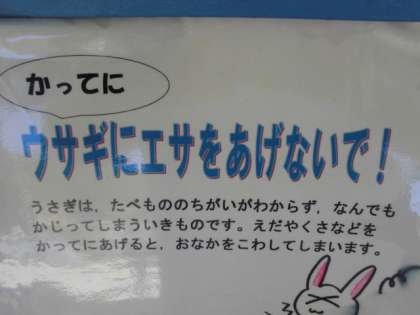 かってに
ウサギにエサをあげないで！
うさぎは，たべもののちがいがわからず，なんでも
かじってしまういきものです。えだやくさなどを
かってにあげると，おなかをこわしてしまいます。